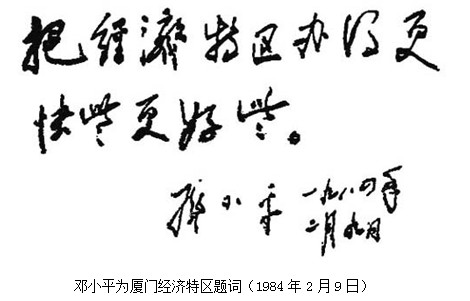 把經濟特区办得更
快些更好些。
邓小平 一九八四年
二月九日
邓小平为厦门经济特区题词（1984年2月9日）